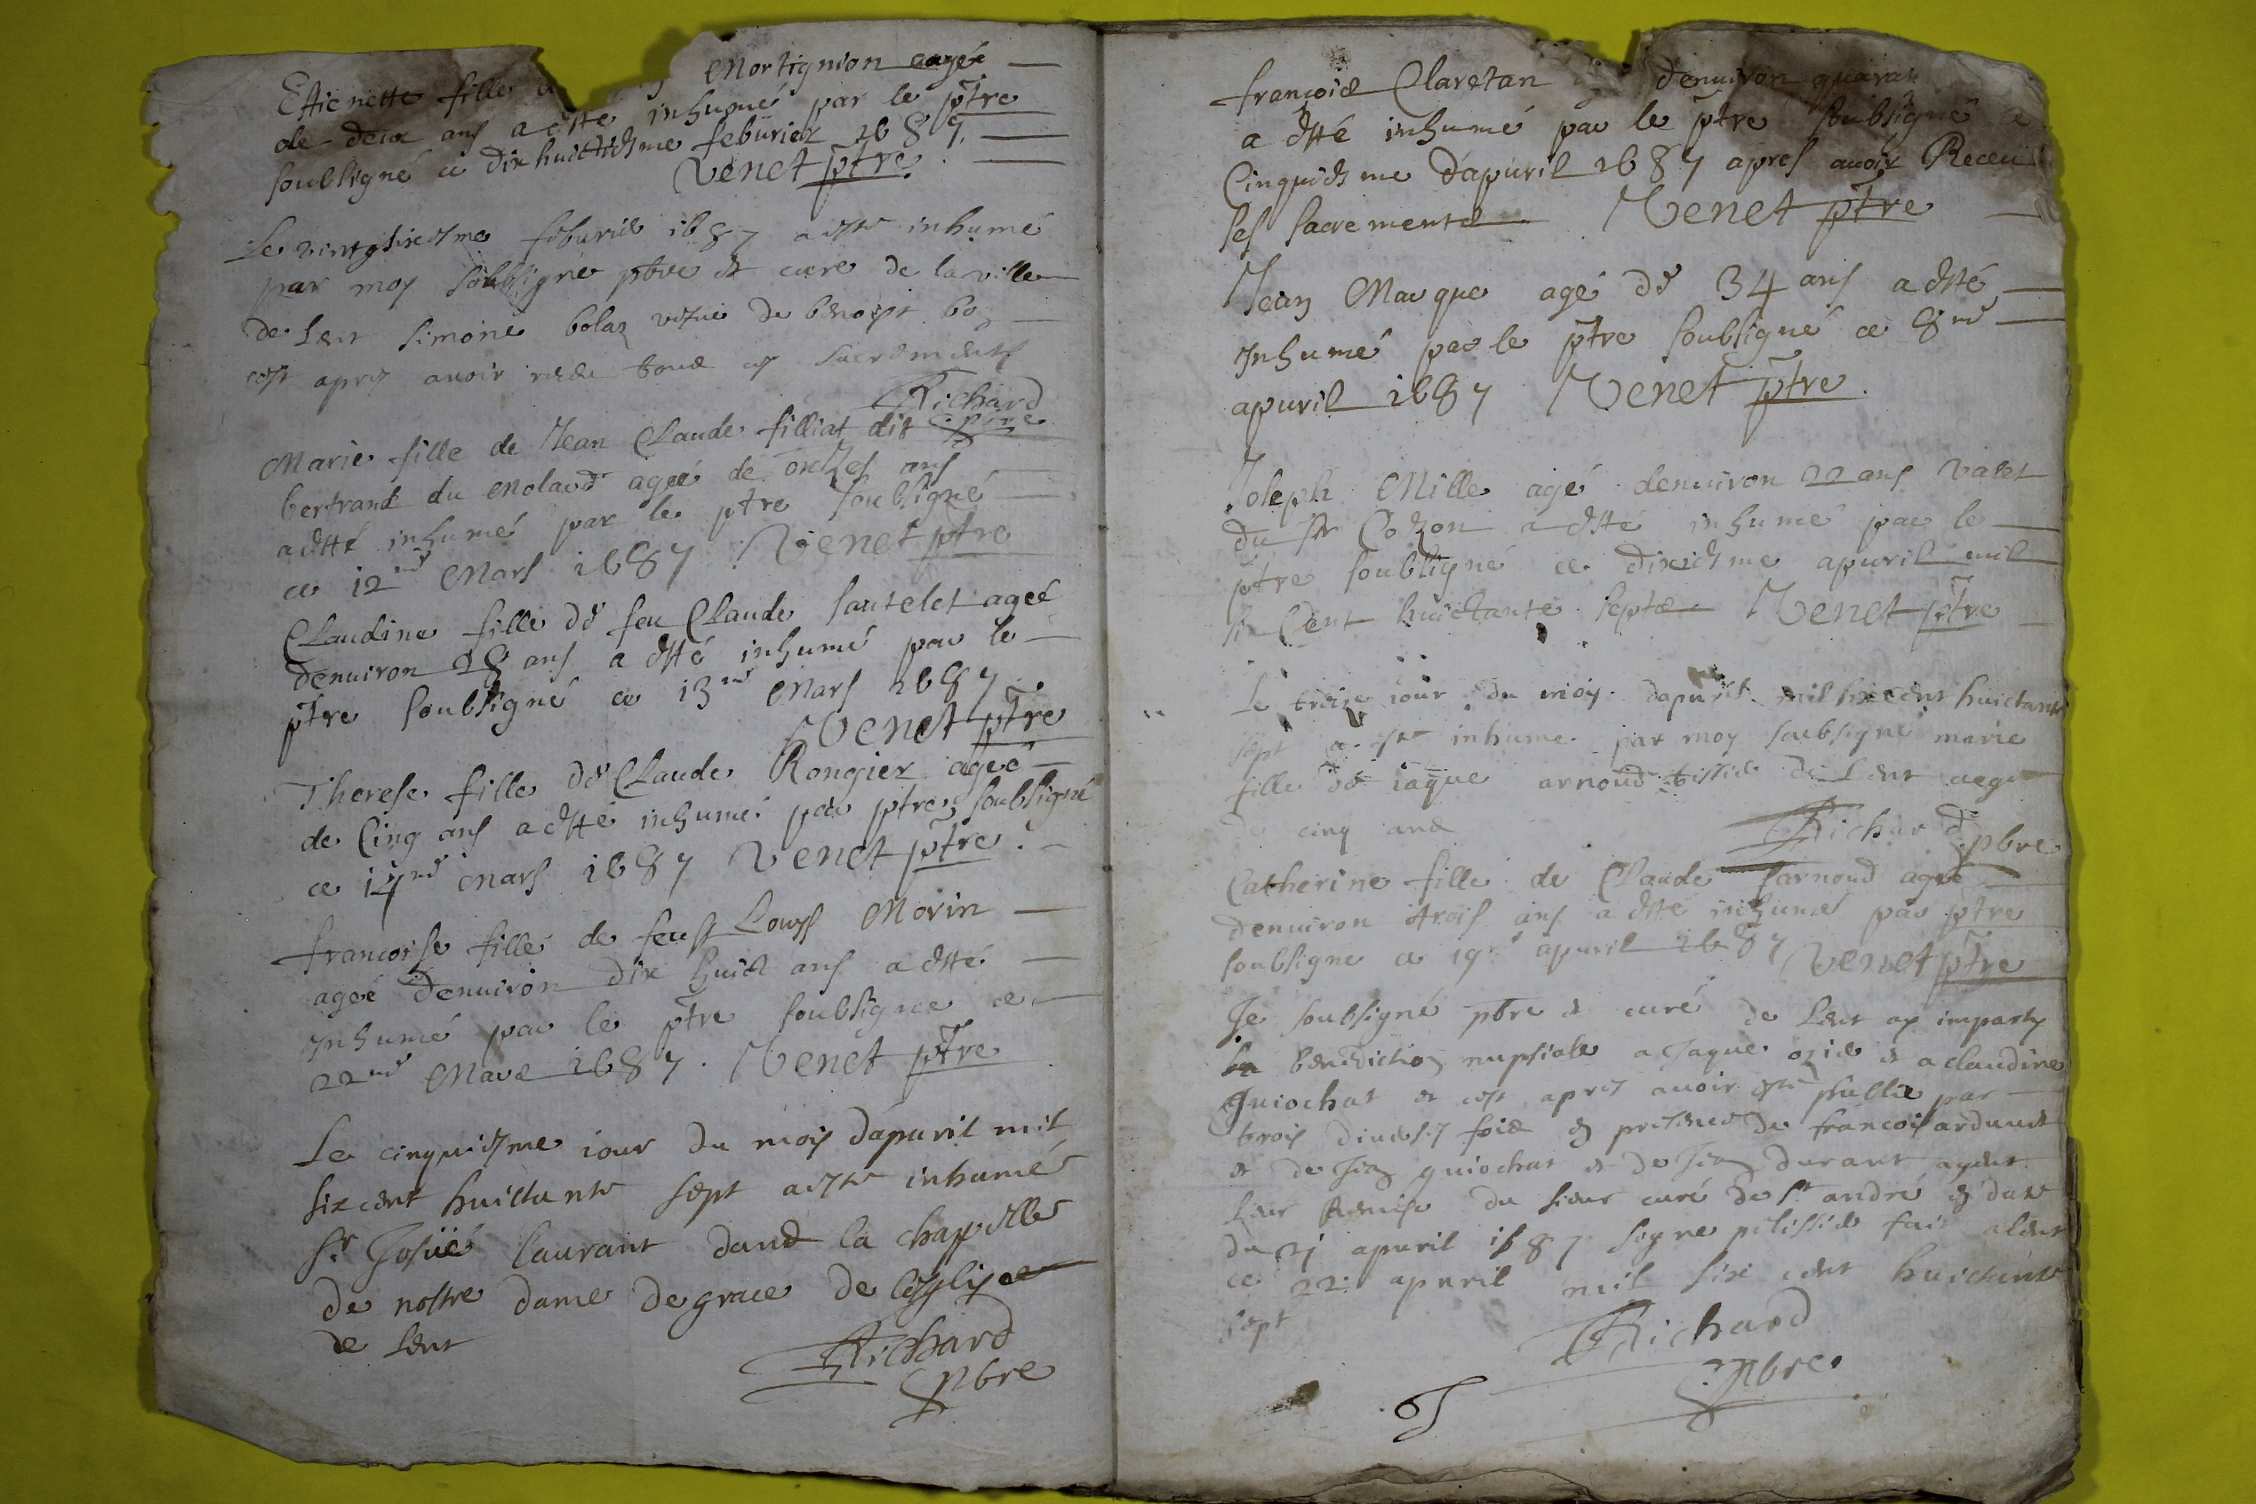 Estienette fille Mortignion eagéé
de deux ans a esté inhumé par le ptre
soubsigné ce dixhuictiesme feburier 1687
Venet ptre
Le vingtsixiesme feburier 1687 a este inhumé
par moy soubsigné pbre et curé de la ville
de Lent Simone bolaz vefue de benoist
cest apres auoir receu tous ces sacrements
Richard
pbre
Marie fille de Jean Claude filliat dit
bertrand du Molard ageé de onzes ans
a esté inhumé par le ptre soubsigné
ce 12nd Mars 1687 Venet ptre
Claudine fille de feu Claude Santelet ageé
denuiron 28 ans a esté inhumé par le
ptre soubsigné ce 13nd Mars 1687
Venet ptre
Therese fille de Claude Rongier ageé
de Cinq ans a esté inhumé par ptre soubsigné
ce 14nd Mars 1687 Venet ptre
francoise fille de feust Louys Morin
ageé denuiron dix huict ans a esté
inhumé par le ptre soubsigné ce
22nd Mars 1687. Venet ptre
Le cinquiesme iour du mois dapuril mil
six cent huictante sept a este inhumé
Sr Josué laurant dans la chappelle
de nostre dame de grace de lesglise
de Lent
Richard
pbre
francois Claretan denuiron
a esté inhumé par le ptre soubsigné ce
Cinquiesme dapuril 1687 apres auoir Receu
ses sacrements Venet ptre
Jean Marque agé de 34 ans a esté
inhumé par le ptre soubsigné ce 8nd
apuril 1687 Venet ptre
Joseph Mille agé denuiron 22 ans valet
du Sr Cozon a esté inhumé par le
ptre soubsigné ce dixiesme apuril mil
six Cent huictante septe Venet ptre
Le treize iour du mois dapuril mil six cent huictante
sept a este inhume par moy soubsigné marie
fille de iaque arnoud tissier de Lent aege
de cinq ans Richard pbre
Catherine fille de Claude Carnoud ageé
denuiron trois ans a esté inhumé par ptre
soubsigne ce 19nd apuril 1687 Venet ptre
Je soubsigné pbre et curé de Lent ay imparty
la benediction nupsiale a Jaque ozier et a claudine
Guiochat et cest apres auoir este publie par
trois diuerses fois en presence de francois
et de Jean guiochat et de Jean durant ayent
leur Remise du sieur curé de St andré en date
du 21 apuril 1687 signe pelissier fait a Lent
ce 22 apuril mil six cent huictante
sept
Richard
pbre